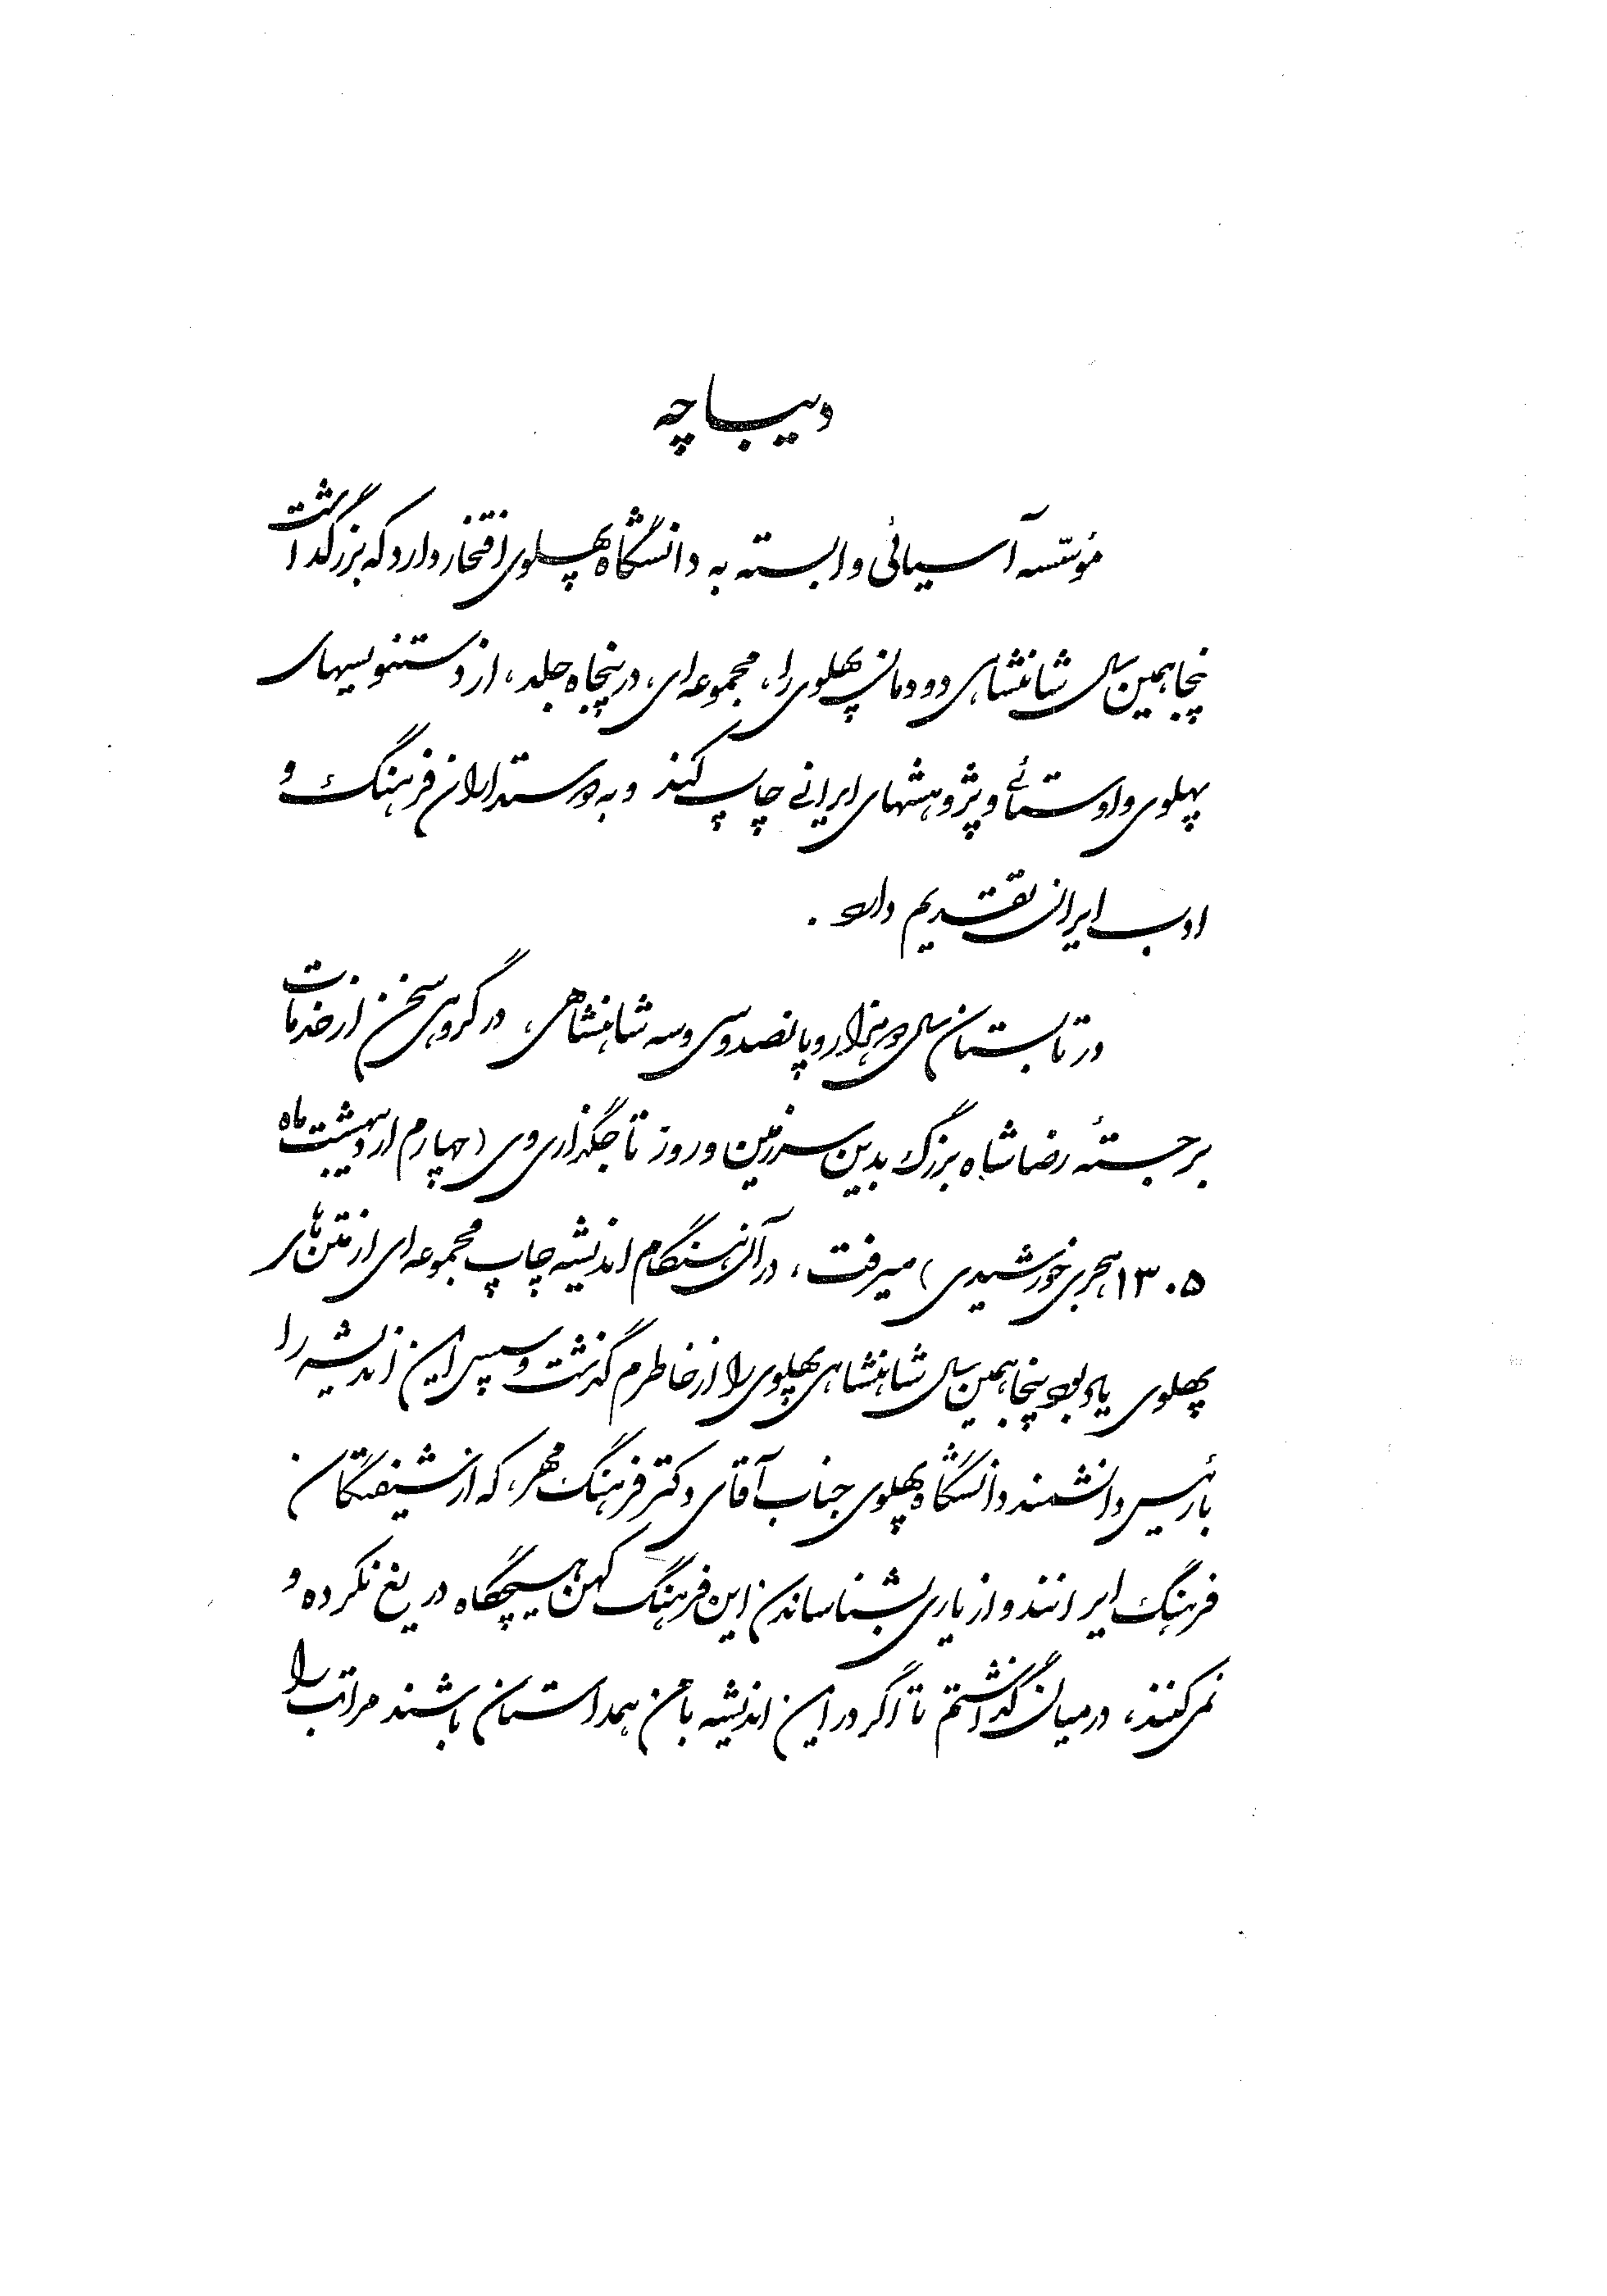 دیباچه
مؤسّسه آسیائی وابسته به دانشگاه پهلوی افتخار دارد که بزرگداشت
پنجاهمین سال شاهنشاهی دودمان پهلوی را، مجموعه‌ای، در پنجاه جلد، از دستنویسهای
پهلوی و اوستائی و پژوهشهای ایرانی چاپ کند و به دوستداران فرهنگ و
ادب ایران تقدیم دارد .
در تابستان سال دو هزار و پانصد و سی و سه شاهنشاهی، در گروهی سخن از خدمات
برجستهٔ رضا شاه بزرگ بدین سرزمین و روز تاجگذاری وی (چهارم اردیبهشت ماه
۱۳۰۵ هجری خورشیدی) میرفت، در آن هنگام اندیشه چاپ مجموعه‌ای از متن‌های
پهلوی یادبود پنجاهمین سال شاهنشاهی پهلوی را از خاطرم گذشت و سپس این اندیشه را
با رئیس دانشمند دانشگاه پهلوی جناب آقای دکتر فرهنگ مهر، که از شیفتگان
فرهنگ ایرانند و از یاری بشناساندن این فرهنگ کهن هیچگاه دریغ نکرده و
نمی‌کنند، در میان گذاشتم تا اگر در این اندیشه با من همداستان باشند مراتب را